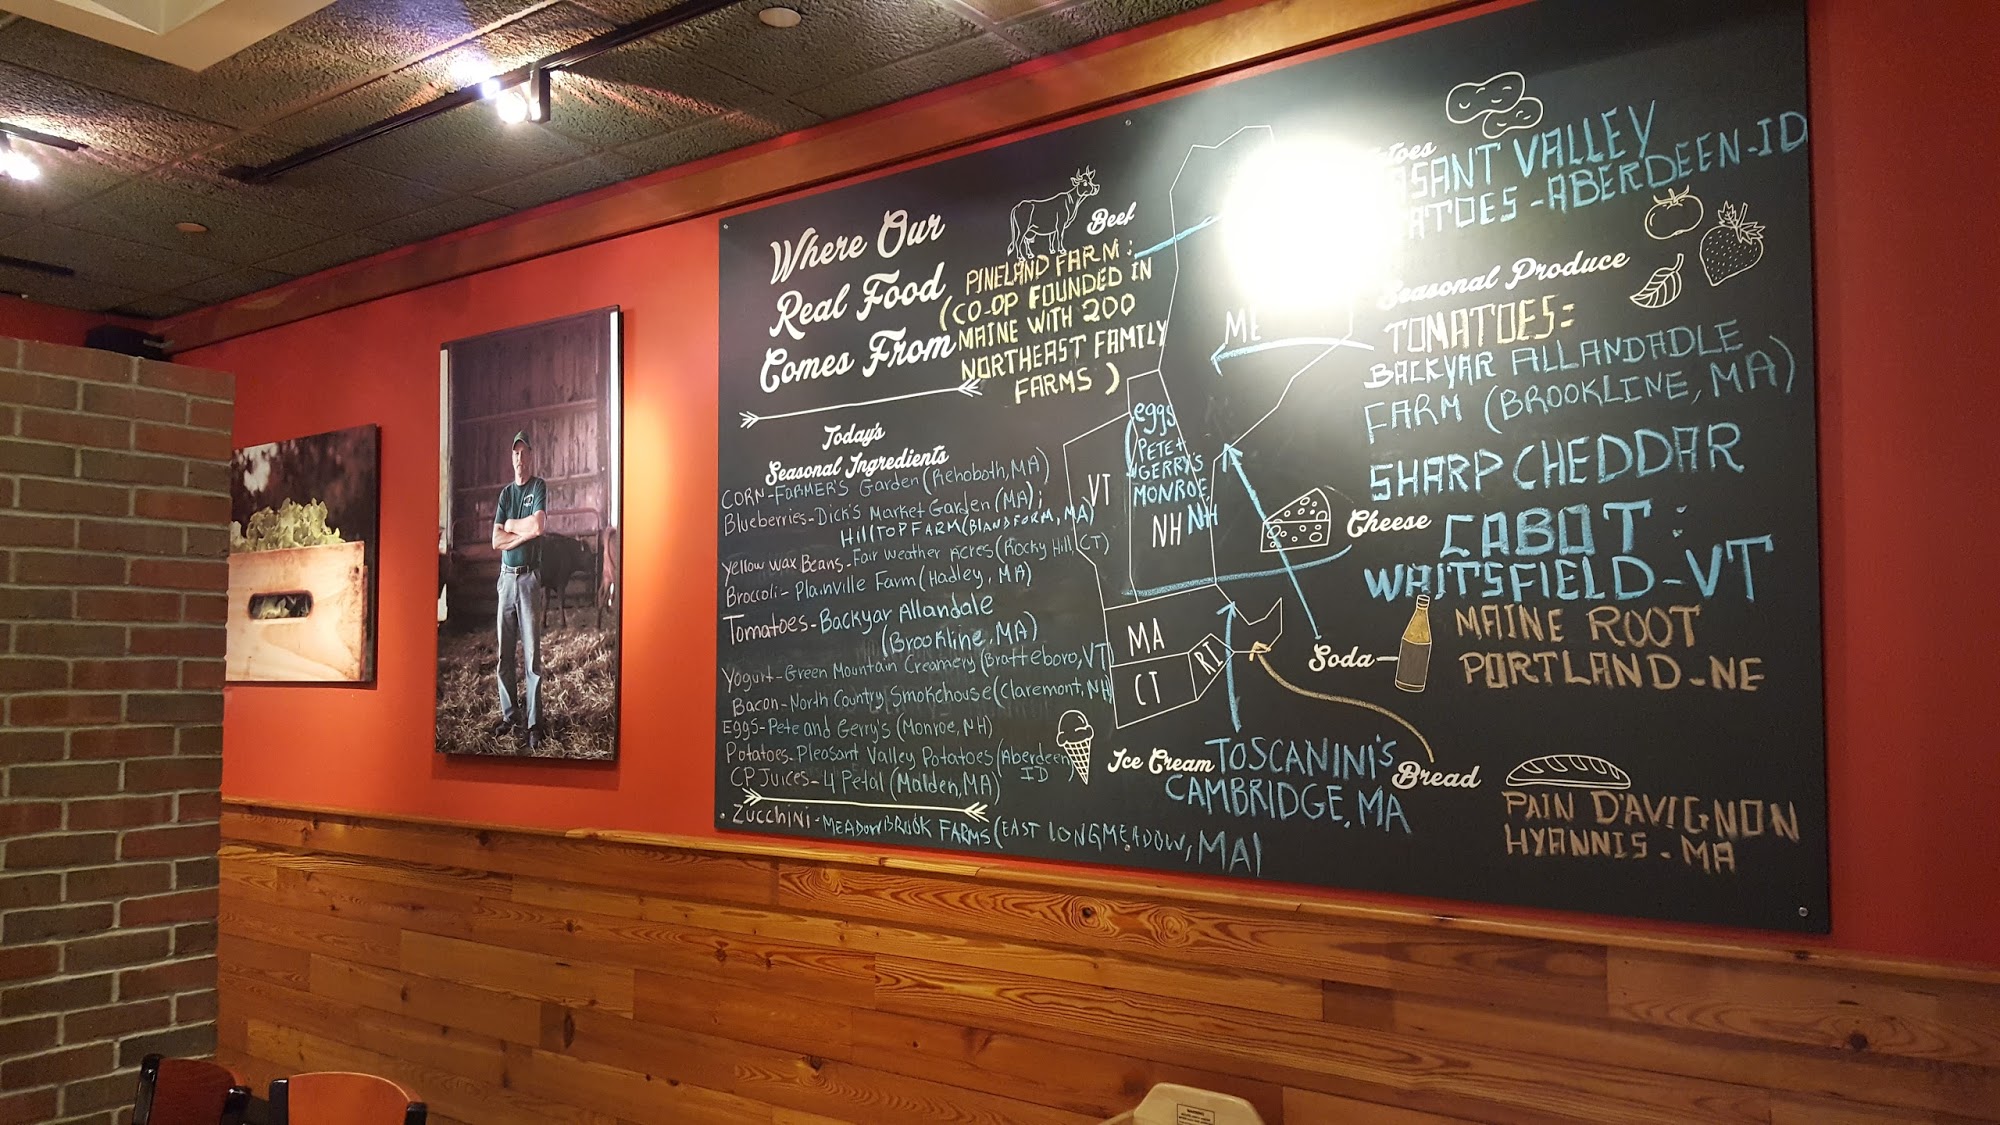 Where Our
Real Food
Comes From
Beef
PINELAND FARM:
(CO-OP FOUNDED IN
MAINE WITH 200
NORTHEAST FAMILY
FARMS)
Today's
Seasonal Ingredients
CORN-FARMER'S Garden (Rehoboth, MA)
Blueberries-Dick's Market Garden (MA);
HillTOP FARM (Blandform, MA)
Yellow wax Beans-Fair weather Acres (Rocky Hill, CT)
Broccoli-Plainville Farm (Hadley, MA)
Tomatoes-Backyar Allandale
(Brookline, MA)
Yogurt-Green Mountain Creamery (Bratteboro, VT)
Bacon-North Country Smokehouse (Claremont, NH)
Eggs-Pete and Gerry's (Monroe, NH)
Potatoes-Pleasant Valley Potatoes (Aberdeen
ID)
CP Juices-4 Petal (Malden, MA)
Zucchini-MEADOWBROOK FARMS (EAST LONGMEADOW, MA)
ME
eggs
(PETE +
GERRY'S
MONROE,
NH
VT
NH
MA
CT
RI
VALLEY
-ABERDEEN-ID
Seasonal Produce
TOMATOES=
BACKYAR ALLANDADLE
FARM (BROOKLINE, MA)
SHARP CHEDDAR
Cheese
CABOT:
WAITSFIELD-VT
Soda
MAINE ROOT
PORTLAND-NE
Ice Cream
TOSCANINI'S
CAMBRIDGE, MA
Bread
PAIN D'AVIGNON
HYANNIS-MA
WARNING